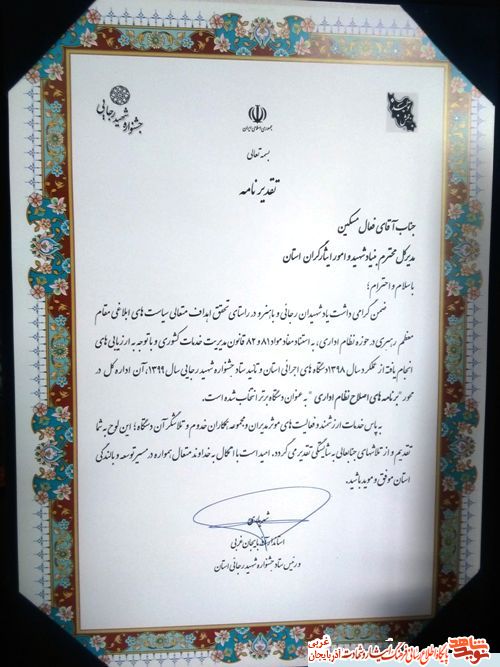 جشنواره شهید رجایی
جمهوری اسلامی ایران
بسمه تعالی
تقدیرنامه
جناب آقای فعال مسکین
مدیرکل محترم بنیاد شهید و امور ایثارگران استان
با سلام و احترام؛
ضمن گرامی داشت یاد شهیدان رجائی و باهنر و در راستای تحقق اهداف متعالی سیاست های ابلاغی مقام
معظم رهبری در حوزه نظام اداری، به استناد مفاد مواد ۸۱ و ۸۲ قانون مدیریت خدمات کشوری و با توجه به ارزیابی های
انجام یافته از عملکرد سال ۱۳۹۸ دستگاه های اجرائی استان و تائید ستاد جشنواره شهید رجایی سال ۱۳۹۹، آن اداره کل در
محور "برنامه های اصلاح نظام اداری" به عنوان دستگاه برتر انتخاب شده است.
به پاس خدمات ارزشمند و فعالیت های موثر مدیران و مجموعه همکاران خدوم و تلاشگر آن دستگاه؛ این لوح به شما
تقدیم و از تلاشهای جنابعالی به شایستگی تقدیر می گردد. امید است با اتکال به خداوند متعال همواره در مسیر توسعه و بالندگی
استان موفق و موید باشید.
شهریاری
استاندار آذربایجان غربی
و رئیس ستاد جشنواره شهید رجائی استان
نوید شاهد پایگاه اطلاع رسانی فرهنگ ایثار و شهادت آذربایجان غربی